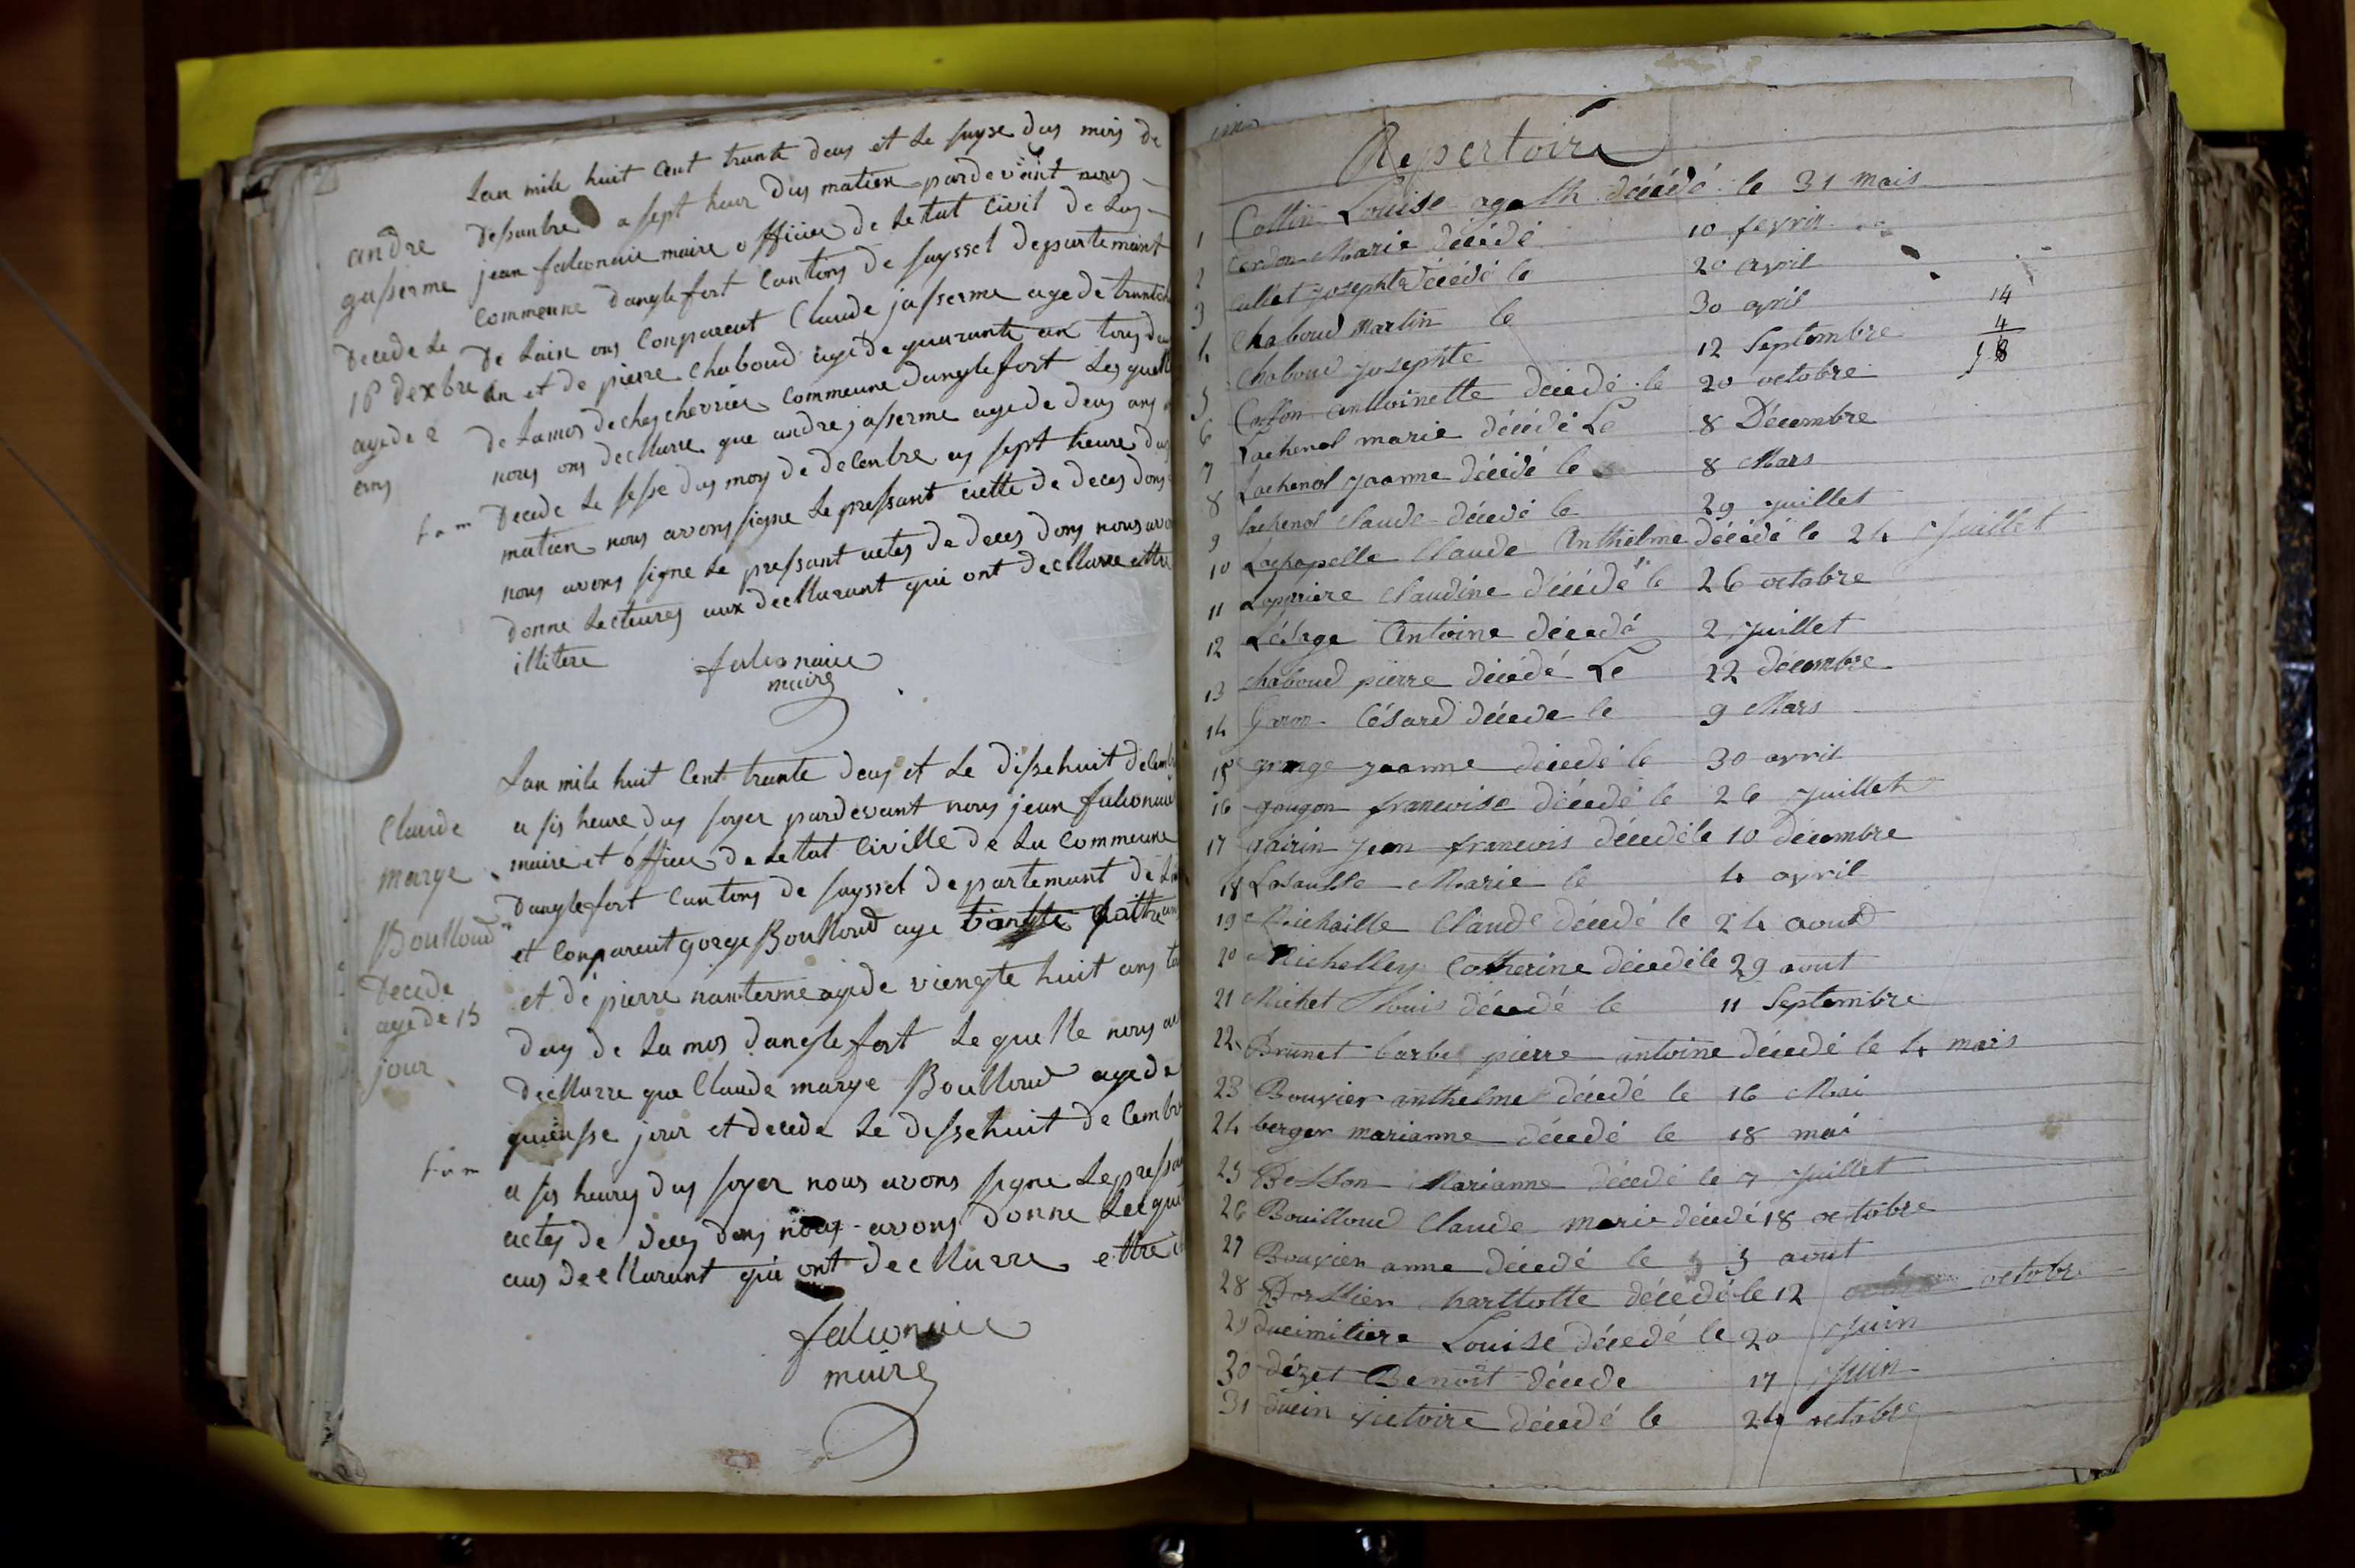 andre
gasserme
decede Le
16 dexbre
agede 2
ans
Lan mile huit Cent trante deus et Le seyse dus mois de
dessanbre a sept heur dus matien pardevant nous
jean falconnie maire officier de Letat Civil de Las
commeune danglefort Cantons de seyssel departemant
de Lain ons Conpareut Claude jasserme age de trante
an et de pierre Chaboud age de quarante an tous deu
de Lamos deches chevrier commeune danglefort Lesquelle
nous ons decllarre que andre jasserme age de deus ans
decede Le sesse dus moy de decenbre as sept heure dus
matien nous avons signe Le pressant aette de deces dons
nous avons signe Le pressant actes de deces dons nous avo
donne Lectures aux decllarant qui ont decllarre ettre
illitere
falconnie
maire
Claude
marye
Boulloud
decede
age de 15
jour
Lan mile huit Cent trante deus et Le dissehuit decenb
a sis heure dus soyer pardevant nous jean falconnie
maire et officier de Letat Civille de La Commeune
danglefort Cantons de seyssel departemant de Lai
et Conpareut gorge Boulloud age vangte quattre ans
et de pierre nanterme age de viengte huit ans to
deus de La mos danglefort Lequelle nous
decllarre que Claude marye Boulloud age de
quiensse jour et decede Le dessehuit decembr
a sis heures dus soyer nous avons signe Le pressa
actes de deces dons nous avons donne
aus decllarant qui ont decllarre ettre
falconnie
maire
Repertoire
1 Collin Louise agath décédé le 31 mais
2 Cerdon Marie décédé 10 fevrier
3 Cullet josephte décédé le 20 avril
4 Chaboud Martin le 30 avril
5 Chaboud josephte 12 Septembre
6 Carron antoinette décédé le 20 octobre
7 Lachenal marie décédé Le 8 Décembre
8 Lachenal jeanne décédé le 8 Mars
9 Lachenal Claude décédé le 29 juillet
10 Lachapelle Claude Anthelme décédé le 24 Juillet
11 Lapprière Claudine décédé le 26 octobre
12 Lésage Antoine décédé 2 juillet
13 Chaboud pierre décédé Le 22 décembre
14 Césard décede le 9 Mars
15 grange jeanne décédé le 30 avril
16 gougon francoise décédé le 26 juillet
17 gairin jean francois décédé le 10 décembre
18 Lasausse Marie le 4 avril
19 Michaille Claude décédé le 24 aout
20 Michelley Catherine décédé le 29 aout
21 Michet Louis décédé le 11 Septembre
22 Brunet barbe pierre antoine décédé le 4 mars
23 Bouvier anthelme décédé le 16 Mai
24 berger marianne décédé le 18 mai
25 Besson Marianne décédé le 7 juillet
26 Bouilloud Claude marie décédé 18 octobre
27 Bouvier anne décédé le 3 aout
28 décédé le 12 octobre
29 ducimitiere Louise décedé le 20 Juin
30 dézet Benoit décede 17 Juin
31 ducin victoire décedé le 24 octobre
14
4
18